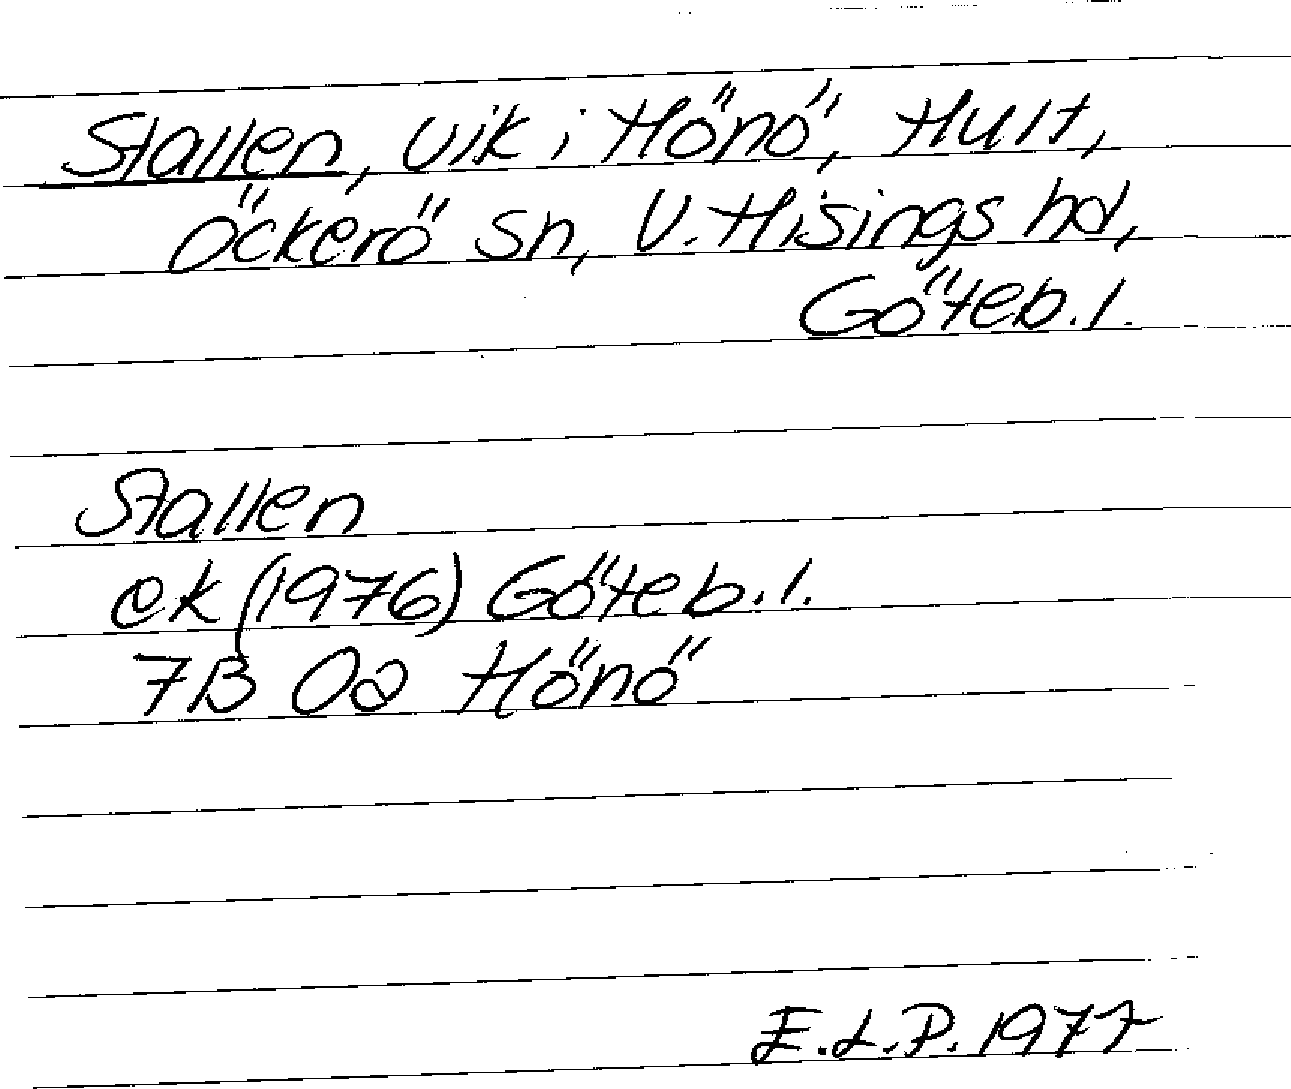 Stallen, vik i Hönö, Hult,
Öckerö sn, V. Hisings hd,
Göteb. l.
Stallen
ek (1976) Göteb. l.
7B 0a Hönö
E.L.P. 1977